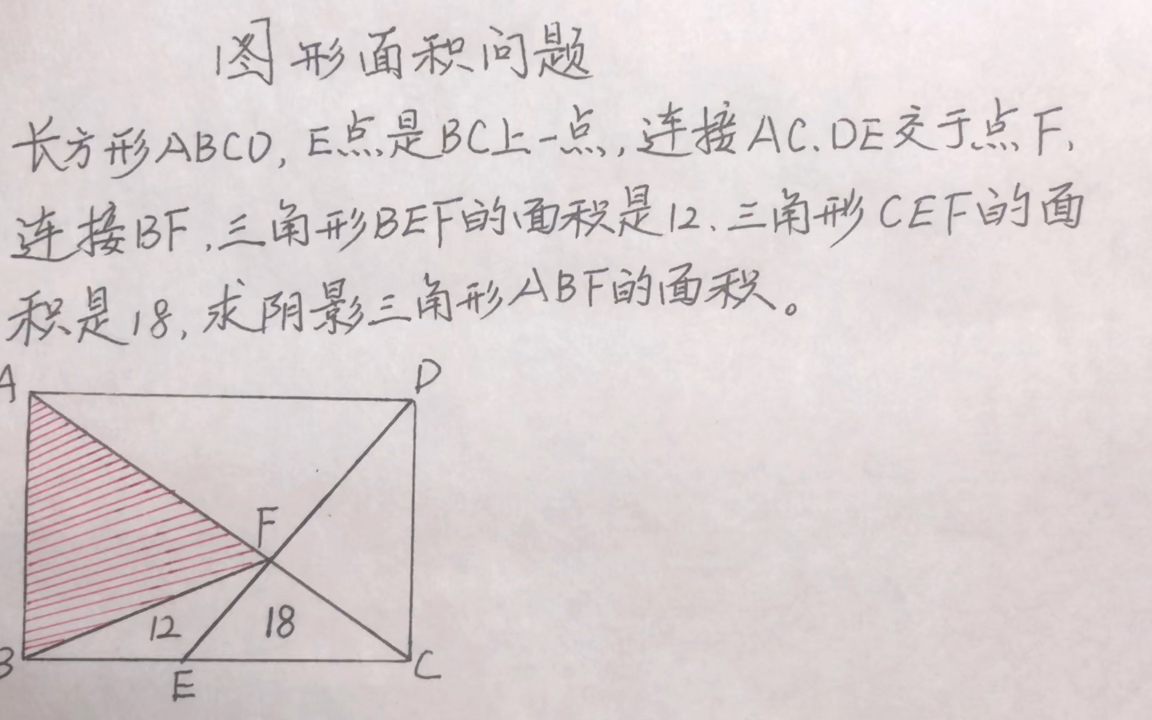 图形面积问题
长方形ABCD,E点是BC上一点,连接AC.DE交于点F,
连接BF,三角形BEF的面积是12.三角形CEF的面
积是18,求阴影三角形ABF的面积。
A
D
F
12
18
B
E
C